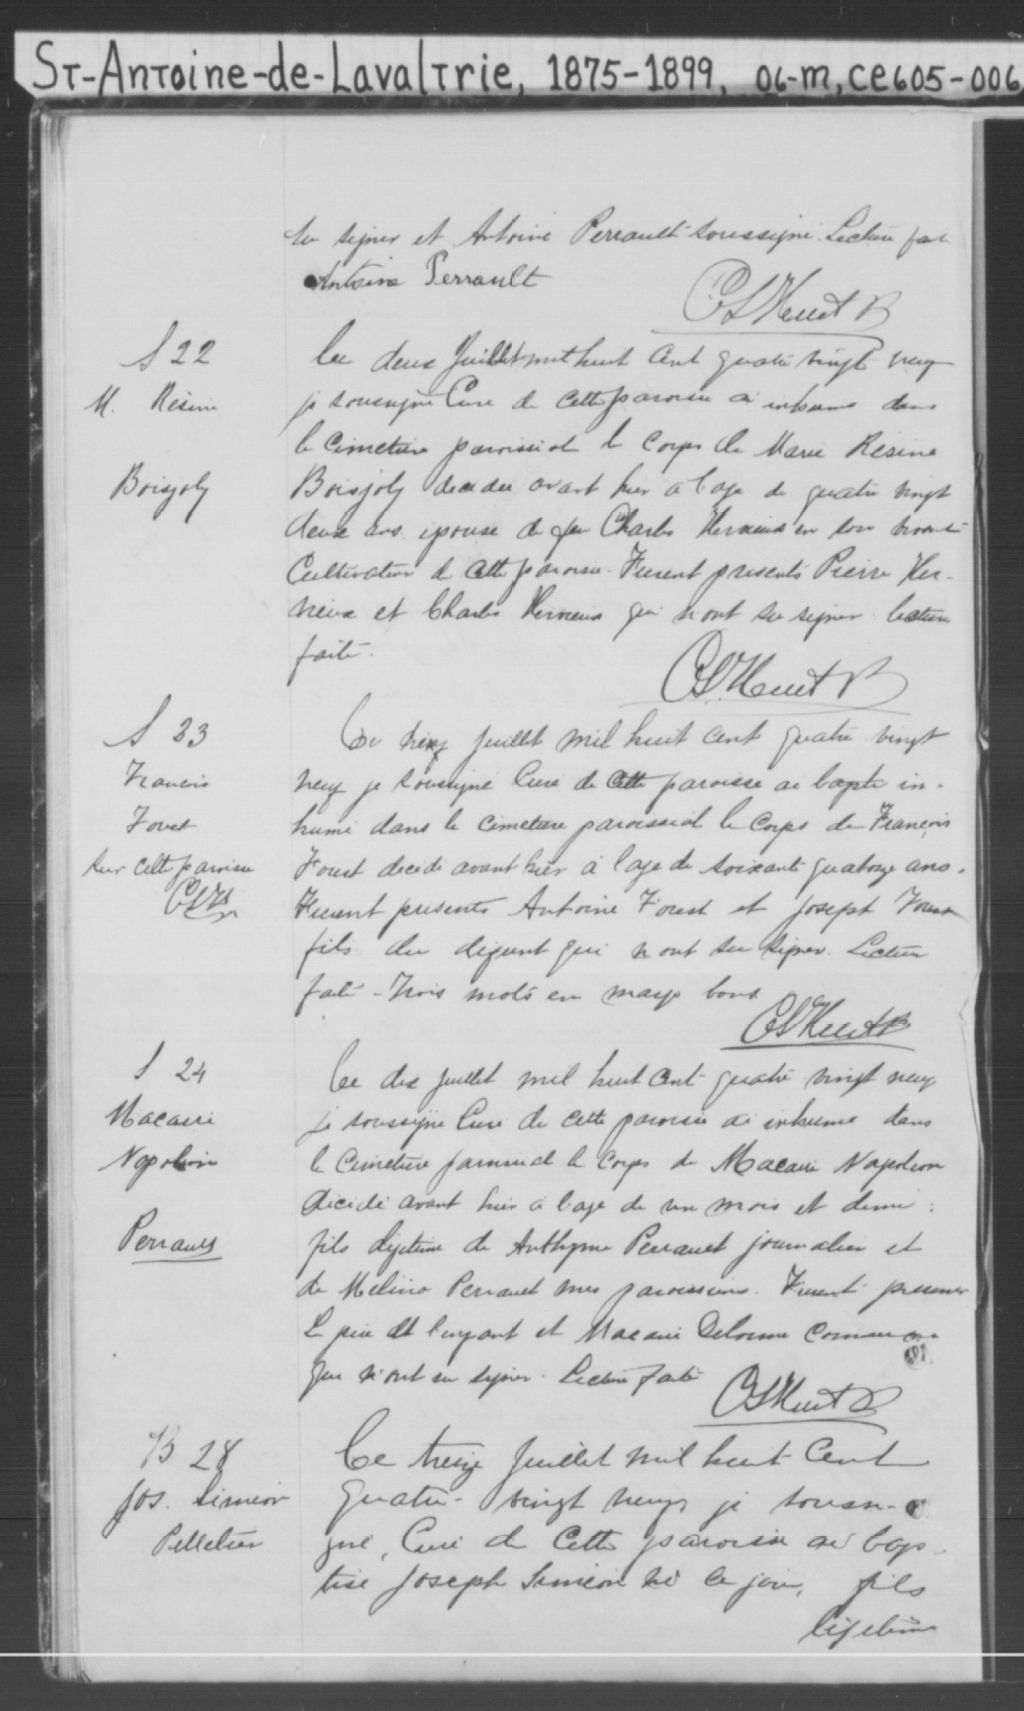 ST-Antoine-de-Lavaltrie, 1875-1899, 06-M, CE605-006
su signer et Antoine Perrault soussigné. Lecture fait
Antoine Perrault
S 22
M. Resine
Boisjoly
Ce deux Juillet mil huit Cent quatre vingt neuf
je soussigné Curé de cette paroisse ai inhumé dans
le Cimetière paroissial le Corps de Marie Resine
Boisjoly decedee avant hier a l'age de quatre vingt
deux ans. epouse de feu Charles Hervieux en son vivant
Cultivateur de cette paroisse. Furent presents Pierre Her-
vieux et Charles Hervieux qui n'ont su signer. lecture
faite.
S 23
Francois
Forest
sur cette paroisse
Ce juillet mil huit Cent quatre vingt
neuf je soussigné Curé de cette paroisse ai bapte in-
humé dans le Cimetiere paroissial le Corps de François
Forest decede avant hier à l'age de soixante quatorze ans.
Furent presents Antoine Forest et Joseph Forest
fils du defunt qui n'ont su signer. Lecture
faite - Trois mots en marge bons
S 24
Macaire
Napoleon
Perrault
Ce dix juillet mil huit Cent quatre vingt neuf
je soussigné Curé de cette paroisse ai inhumé dans
le Cimetière paroissial le Corps de Macaire Napoleon
décédé avant hier a l'age de un mois et demi.
fils legitime de Anthyme Perrault journalier et
de Melina Perrault mes paroissiens. Furent presents
Le père de l'enfant et Macaire Delorme
qui n'ont su signer. Lecture faite
B 28
Jos. Simeon
Pelletier
Ce treize Juillet mil huit Cent
quatre-vingt neuf je soussi-
gné, Curé de Cette paroisse ai bap-
tisé Joseph Simeon né ce jour, fils
légitime